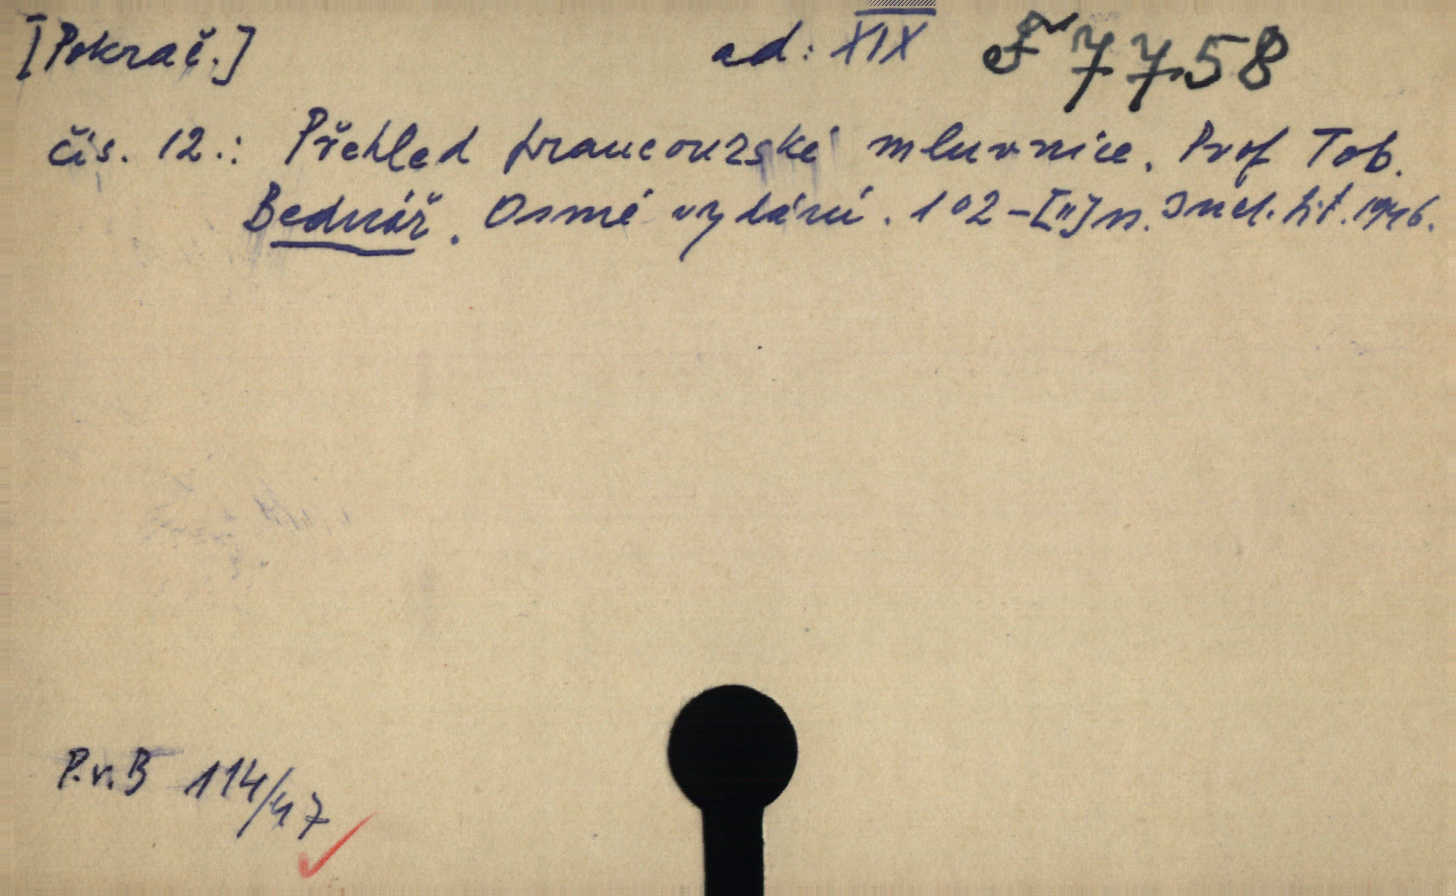 [Pokrač.] ad: XIX F 7758
čís. 12.: Přehled francouzské mluvnice. Prof Tob.
Bednář. Osmé vydání. 102-[II] s. Incl. lit. 1946.
P.v.B 114/47